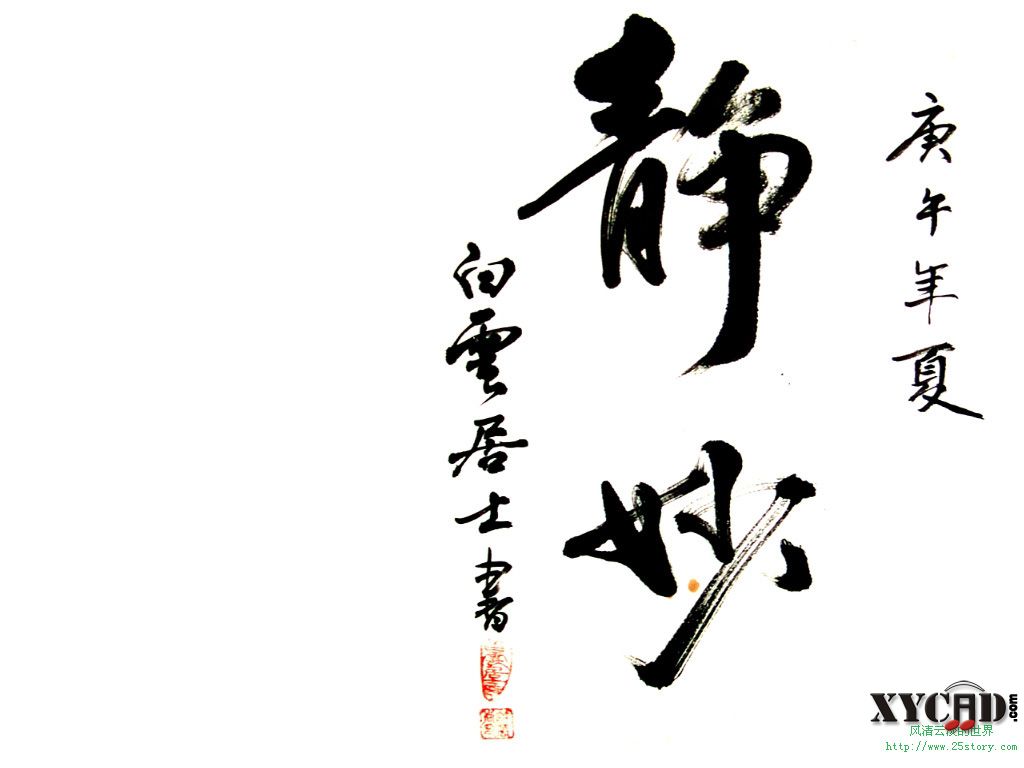 庚午年夏
静妙
白雲居士書
XYCAD.com
风清云淡的世界
http://www.25story.com